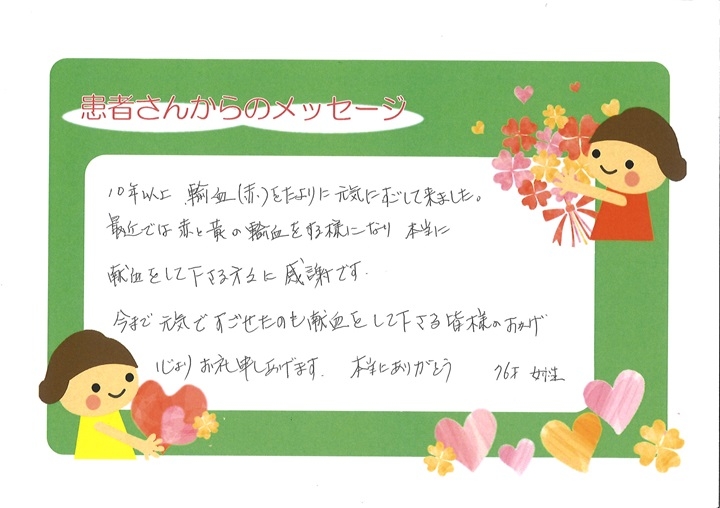 患者さんからのメッセージ
10年以上 輸血(赤)をたよりに元気にすごして来ました。
最近では赤と黄の輸血をする様になり 本当に
献血をして下さる方々に感謝です.
今まで元気ですごせたのも献血をして下さる皆様のおかげ
心よりお礼申しあげます. 本当にありがとう 76才 女性